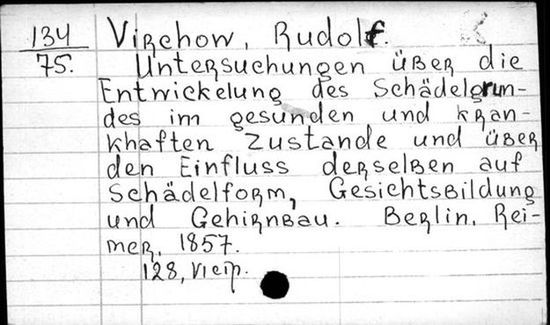 134 Virchow, Rudolf.
75. Untersuchungen über die
Entwickelung des Schädelgrun-
des im gesunden und kran-
khaften Zustande und über
den Einfluss derselben auf
Schädelform, Gesichtsbildung
und Gehirnbau. Berlin, Rei-
mer, 1857.
128,